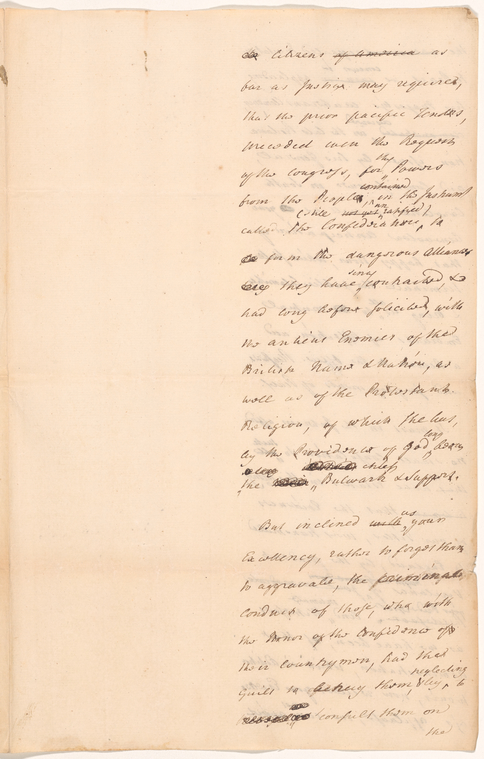 Citizens of America as
far as Justice may require,
that the prior pacific Tenders,
preceded even the Requests
of the Congress, for the Powers
from the People, contained in the Instrumt
(still not yet ratified)
called the Confederation, to
form the dangerous Alliance
they have since contracted, &
had long before solicited, with
the antient Enemies of the
British Name & Nation, as
well as of the Protestant
Religion, of which she has,
by the Providence of God, long been
the chief Bulwark & Support.
But inclined as your
Excellency, rather to forget than
to aggravate, the
conduct of those, who with
the Honor of the Confidence of
their Countrymen, had the
guilt to betray them, by neglecting to
consult them on
the